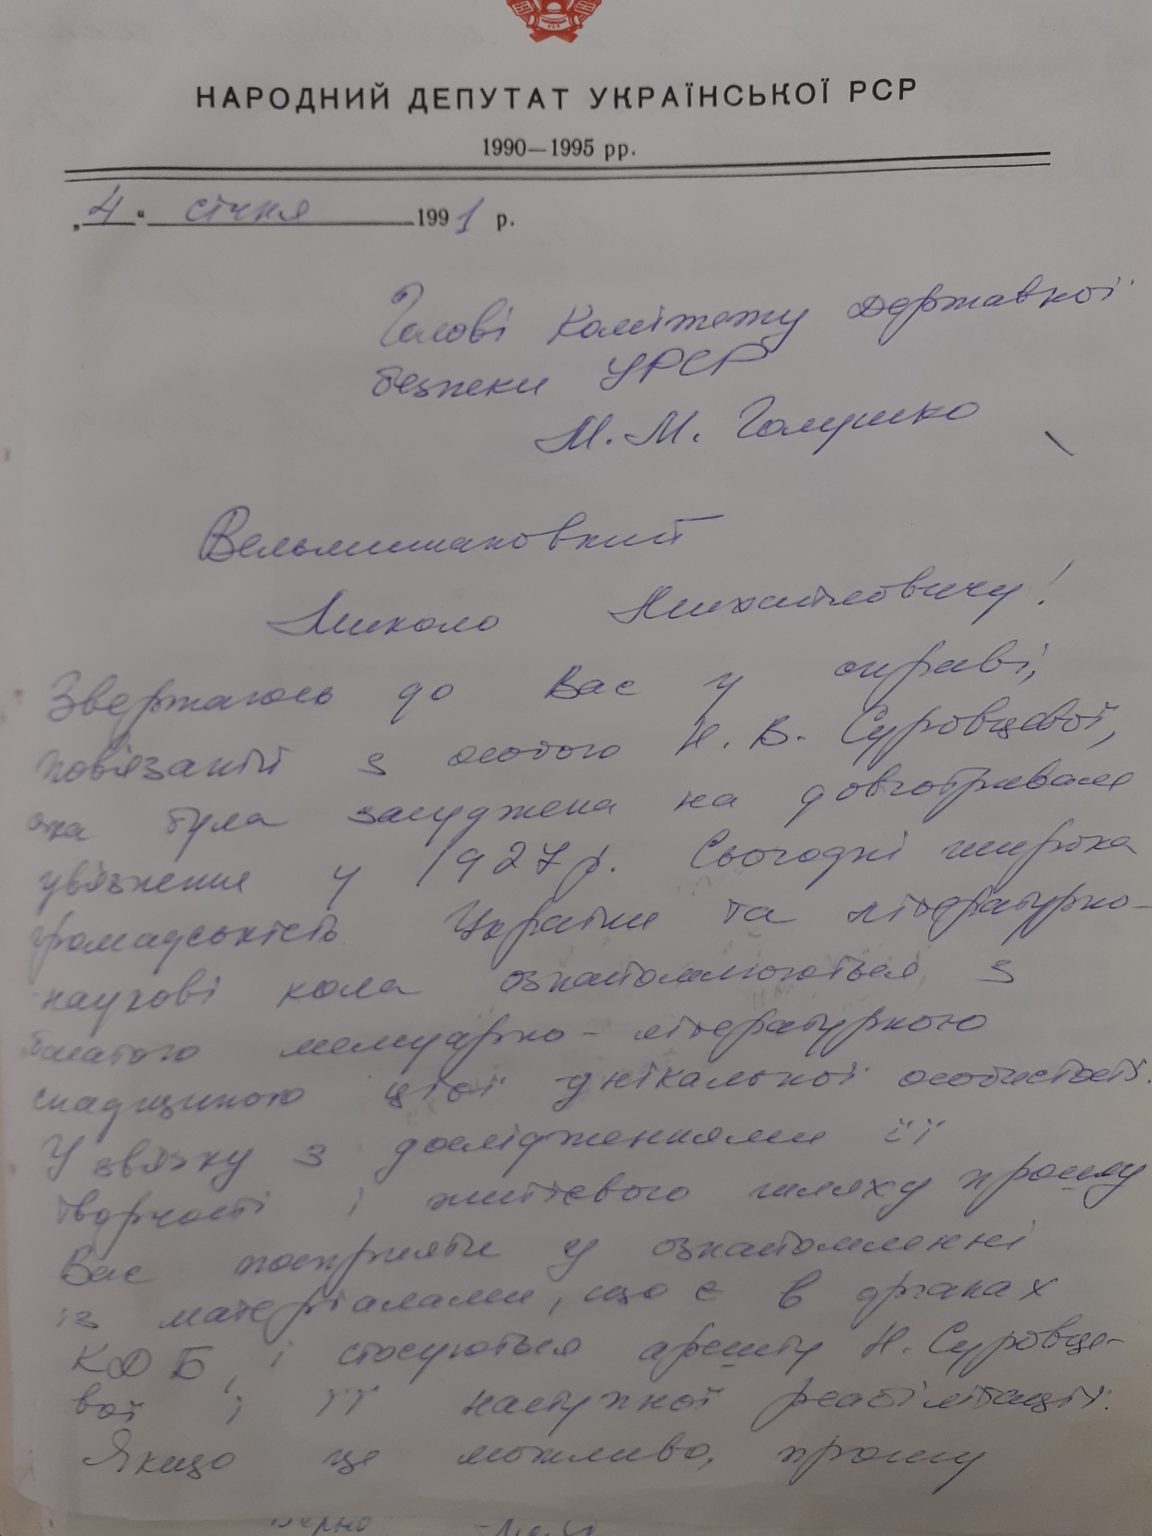 НАРОДНИЙ ДЕПУТАТ УКРАЇНСЬКОЇ РСР
1990—1995 рр.
„4" січня 1991 р.
Голові Комітету Державної
безпеки УРСР
М. М. Голушко
Вельмишановний
Миколо Михайловичу!
Звертаюсь до Вас у справі,
пов'язаній з особою Н. В. Суровцевої,
яка була засуджена на довготривале
ув'язнення у 1927 р. Сьогодні широка
громадськість України та літературно-
наукові кола ознайомлюються з
багатою мемуарно-літературною
спадщиною цієї унікальної особистості.
У зв'язку з дослідженнями її
творчості і життєвого шляху прошу
Вас посприяти у ознайомленні
із матеріалами, що є в органах
КДБ, і стосуються арешту Н. Суровце-
вої і її наступної реабілітації.
Якщо це можливо, прошу